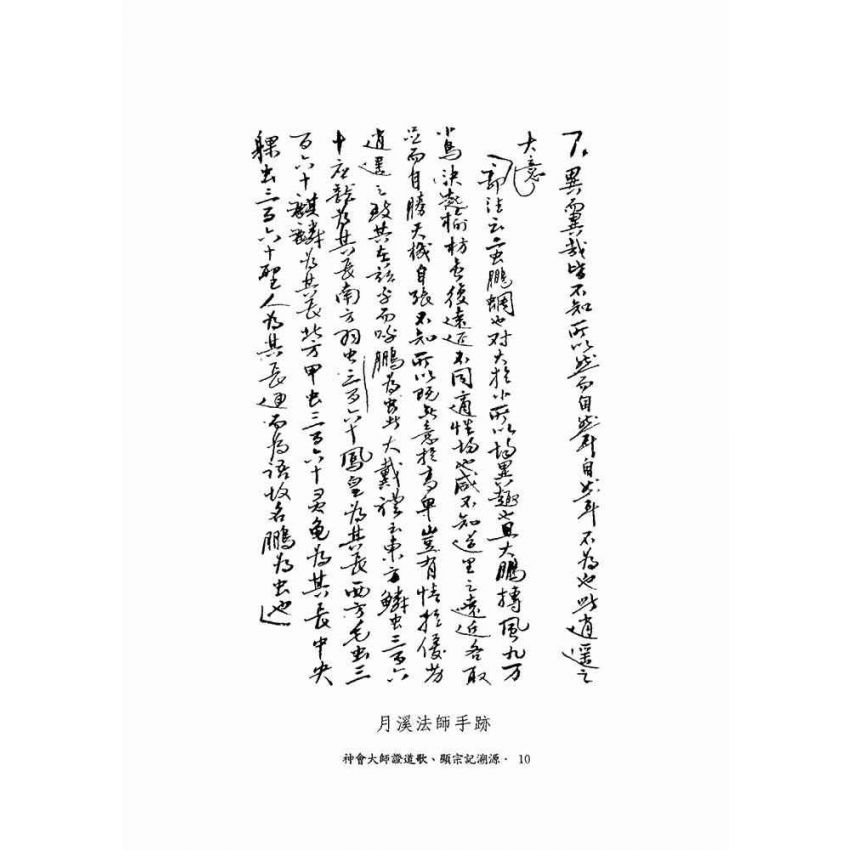 不異而異哉皆不知所以然而自然耳自然耳不為也此逍遥之
大意
郭注云二虫鵬蜩也对大於小所以均異趣也且大鵬摶風九万
小鳥決起榆枋虽復遠近不同適性均也咸不知道里之遠近各取
足而自勝天機自張不知所以既無意於高卑豈有情於優劣
逍遥之致其在茲乎而呼鵬為虫者大戴禮云東方鱗虫三百六
十应龍為其長南方羽虫三百六十鳳皇為其長西方毛虫三
百六十麒麟為其長北方甲虫三百六十灵龟為其長中央
躶虫三百六十聖人為其長通而為語故名鵬為虫也
月溪法師手跡
神會大師證道歌、顯宗記溯源· 10